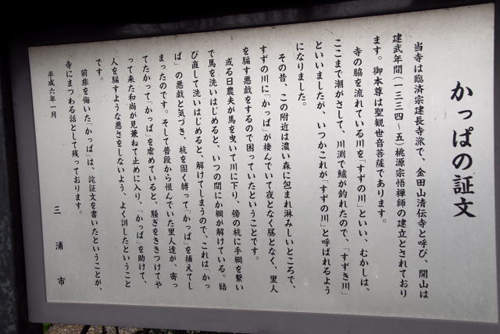 かっぱの証文
当寺は臨済宗建長寺派で、金田山清伝寺と呼び、開山は
建武年間(一三三四~五)桃源宗悟禅師の建立とされており
ます。御本尊は聖観世音菩薩であります。
寺の脇を流れている川を「すずの川」といい、むかしは、
ここまで潮がさして、川渕で鱸が釣れたので、「すずき川」
といいましたが、いつかこれが「すずの川」と呼ばれるよう
になりました。
その昔、この附近は濃い森に包まれ淋みしいところで、
すずの川に「かっぱ」が棲んでいて夜となく昼となく、里人
を騙す悪戯をするので困っていたということです。
或る日農夫が馬を曳いて川に下り、傍の杭に手綱を繋い
で馬を洗いはじめると、いつの間にか綱が解けている。結
び直して洗いはじめると解けてしまうので、これは「かっ
ぱ」の悪戯と気づき、杭を固く縛って「かっぱ」を捕えてし
まったのです。そして普段から恨んでいた里人達が、寄っ
てたかってかっぱを虐めていると、騒ぎをききつけてや
って来た和尚が見兼ねて止めに入り、「かっぱ」を助けて、
人を騙すような悪さをしないよう、よく訓したということ
です。
前非を悔いた「かっぱ」は、詫証文を書いたということが、
寺にまつわる話として残っております。
平成六年一月
三浦市